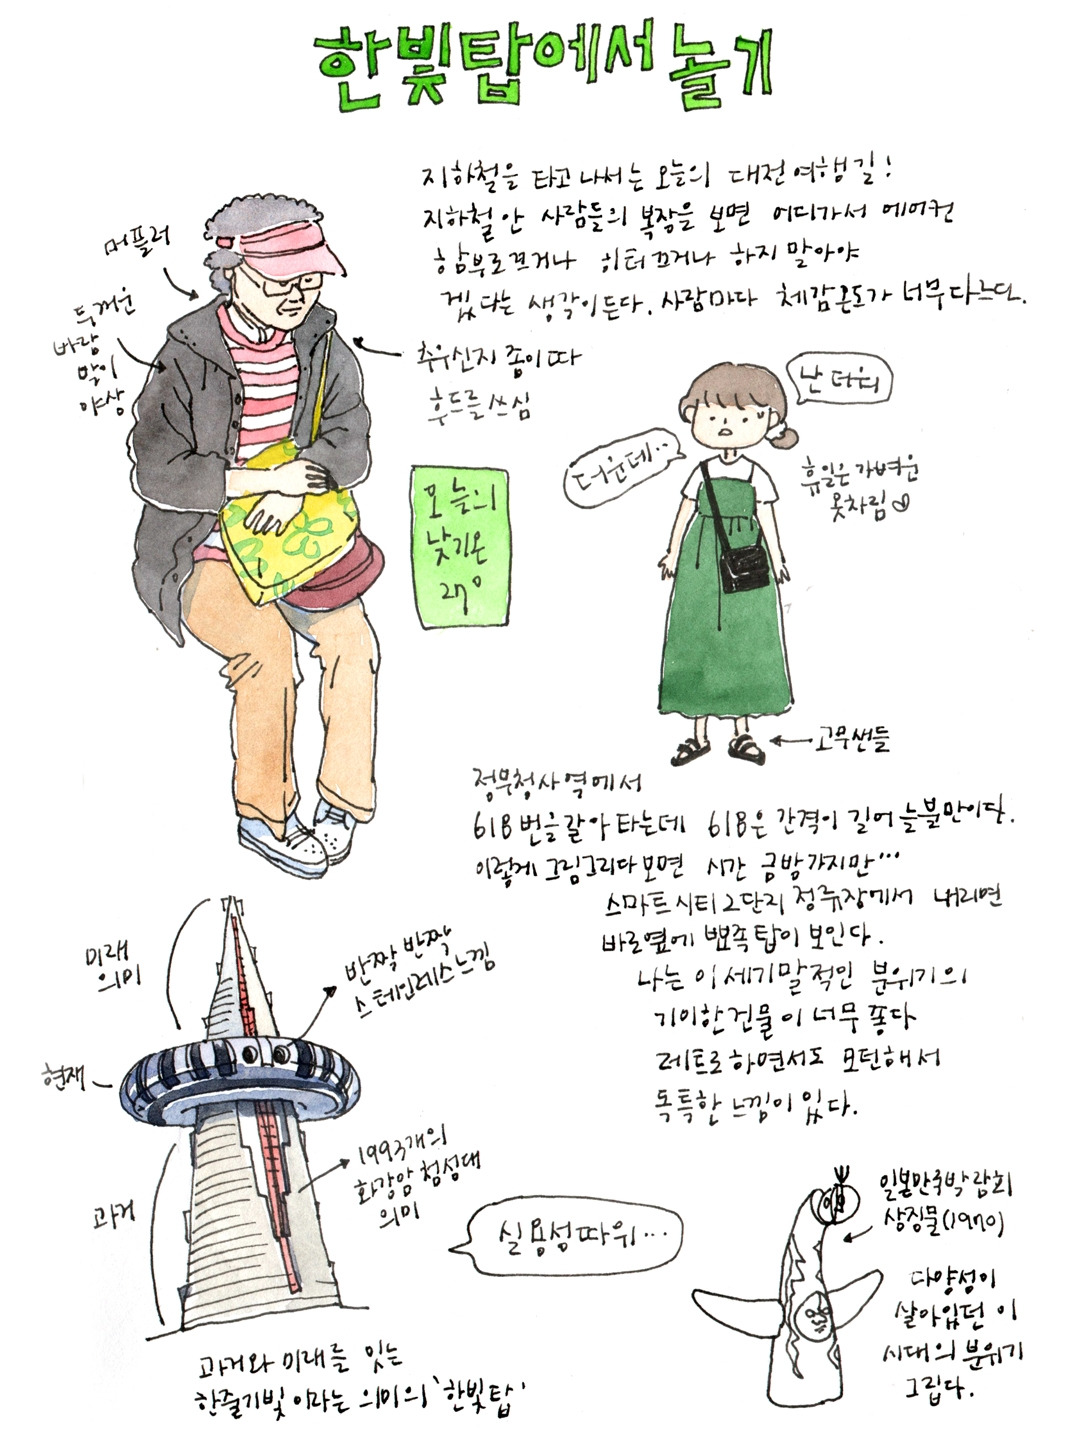 한빛탑에서 놀기
지하철을 타고 나서는 오늘의 대전여행길!
지하철 안 사람들의 복장을 보면 어디가서 에어컨
함부로 켜거나 히터 끄거나 하지 말아야
겠다는 생각이 든다. 사람마다 체감온도가 너무 다르다.
머플러
두꺼운
바람
막이
야상
추우신지 좀이따
후드를 쓰심
오늘의
낮기온
27°
난 더워
더운데..
휴일은 가벼운
옷차림
고무샌들
정부청사역에서
618번을 갈아타는데 618은 간격이 길어 늘 불만이다.
이렇게 그림그리다보면 시간 금방가지만...
스마트시티 2단지 정류장에서 내리면
바로옆에 뾰족탑이 보인다.
나는 이 세기말적인 분위기의
기이한 건물이 너무 좋다
레트로하면서도 모던해서
독특한 느낌이 있다.
미래
의미
반짝 반짝
스테인레스느낌
현재
1993개의
화강암 첨성대
의미
과거
실용성따위...
일본만국박람회
상징물(1970)
다양성이
살아있던 이
시대의 분위기
그립다.
과거와 미래를 잇는
한줄기빛 이라는 의미의 '한빛탑'